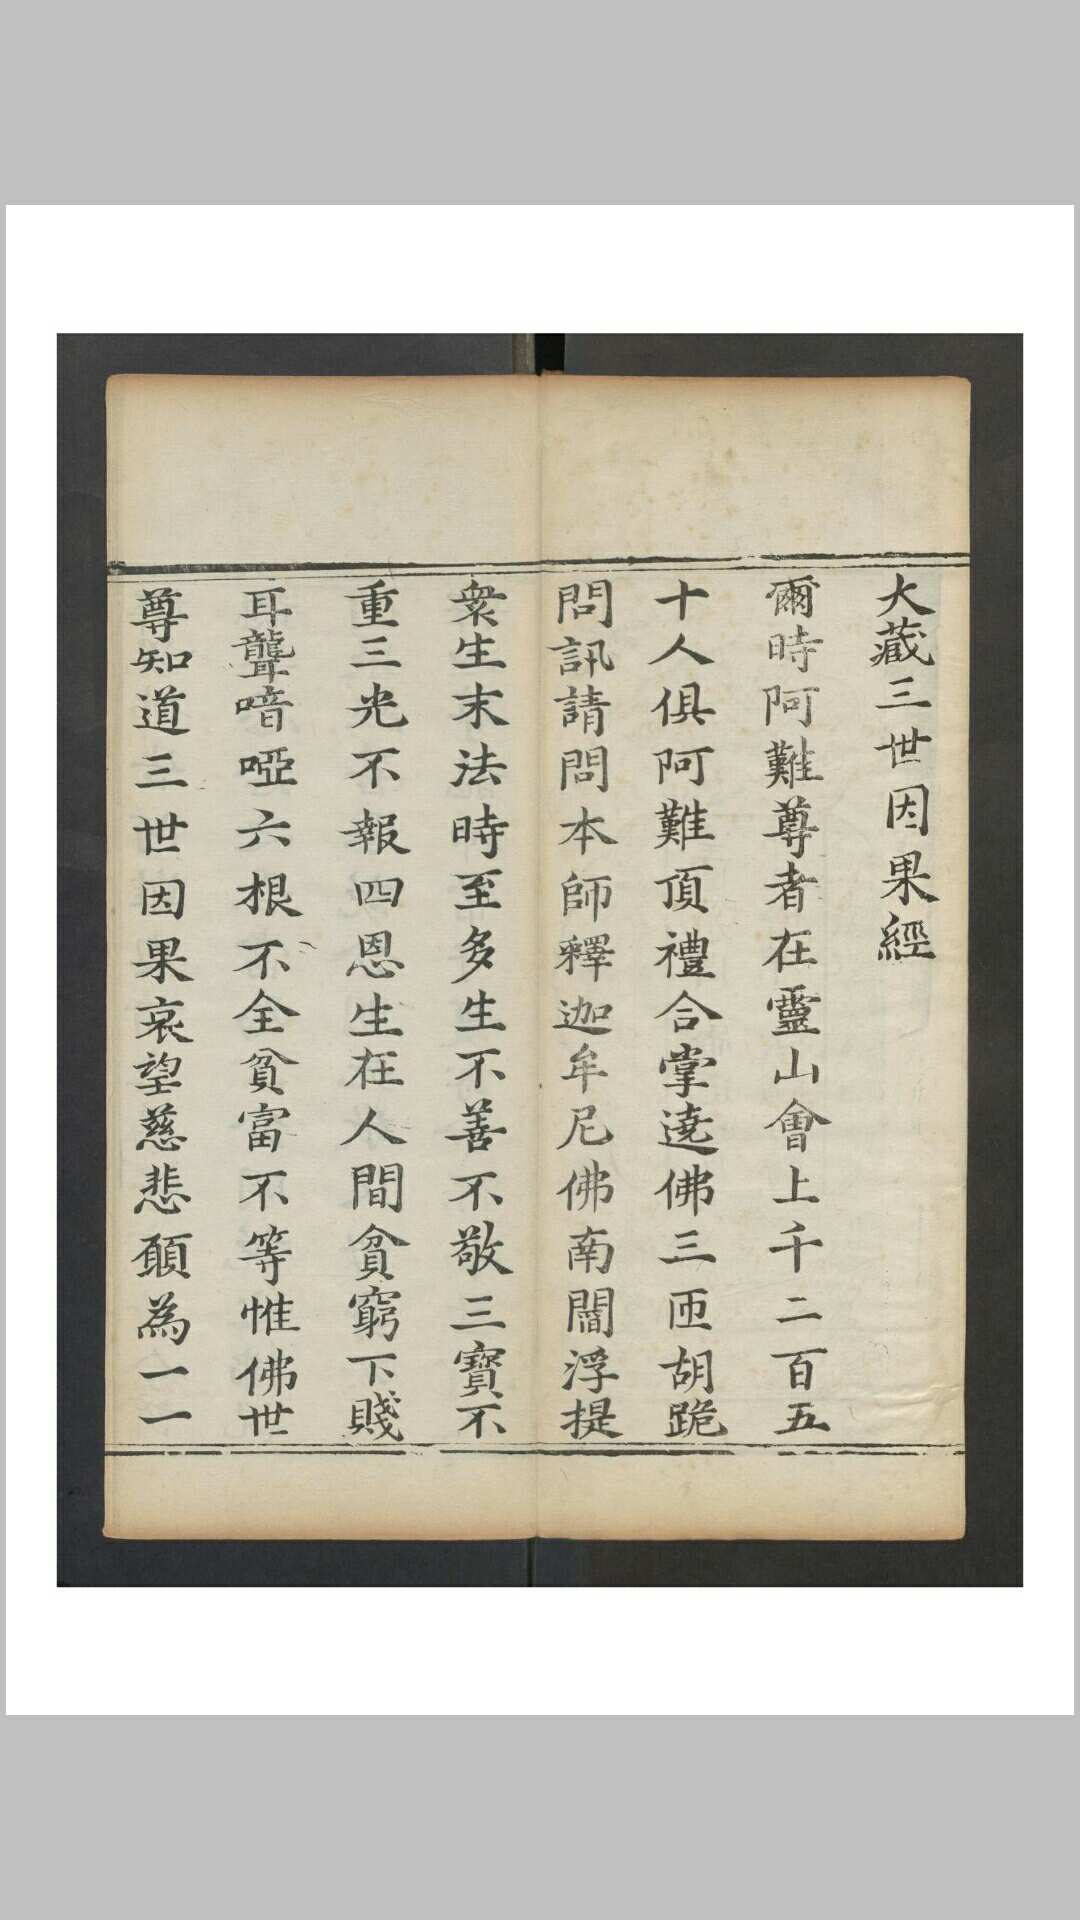 大藏三世因果經
爾時阿難尊者在靈山會上千二百五
十人俱阿難頂禮合掌遶佛三匝胡跪
問訊請問本師釋迦牟尼佛南閻浮提
衆生末法時至多生不善不敬三寶不
重三光不報四恩生在人間貧窮下賤
耳聾喑啞六根不全貧富不等惟佛世
尊知道三世因果哀望慈悲願為一一